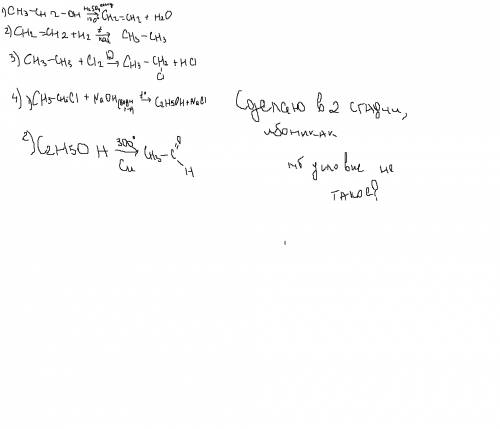 1) CH3-CH2-OH H2SO4 → CH2=CH2 + H2O
2) CH2=CH2 + H2 t → CH3-CH3
3) CH3-CH3 + Cl2 → CH3-CH2 + HCl
Cl
4) CH3-CH2Cl + NaOH t° → C2H5OH + NaCl
2) C2H5OH 300° → CH3-C O
Cu H
Сделаю в 2 стадии,
ибо никак
мб условие не
такое?